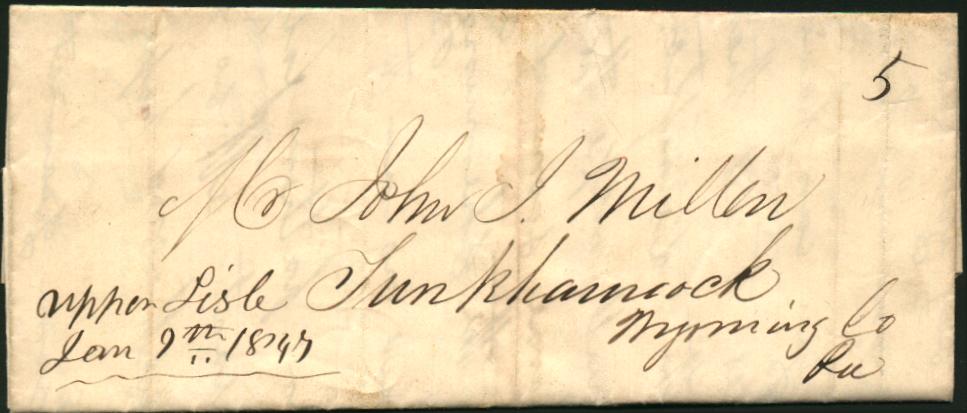 5
Mr John J. Miller
Tunkhannock
Wyoming Co
Pa
Upper Lisle
Jan 9th 1847